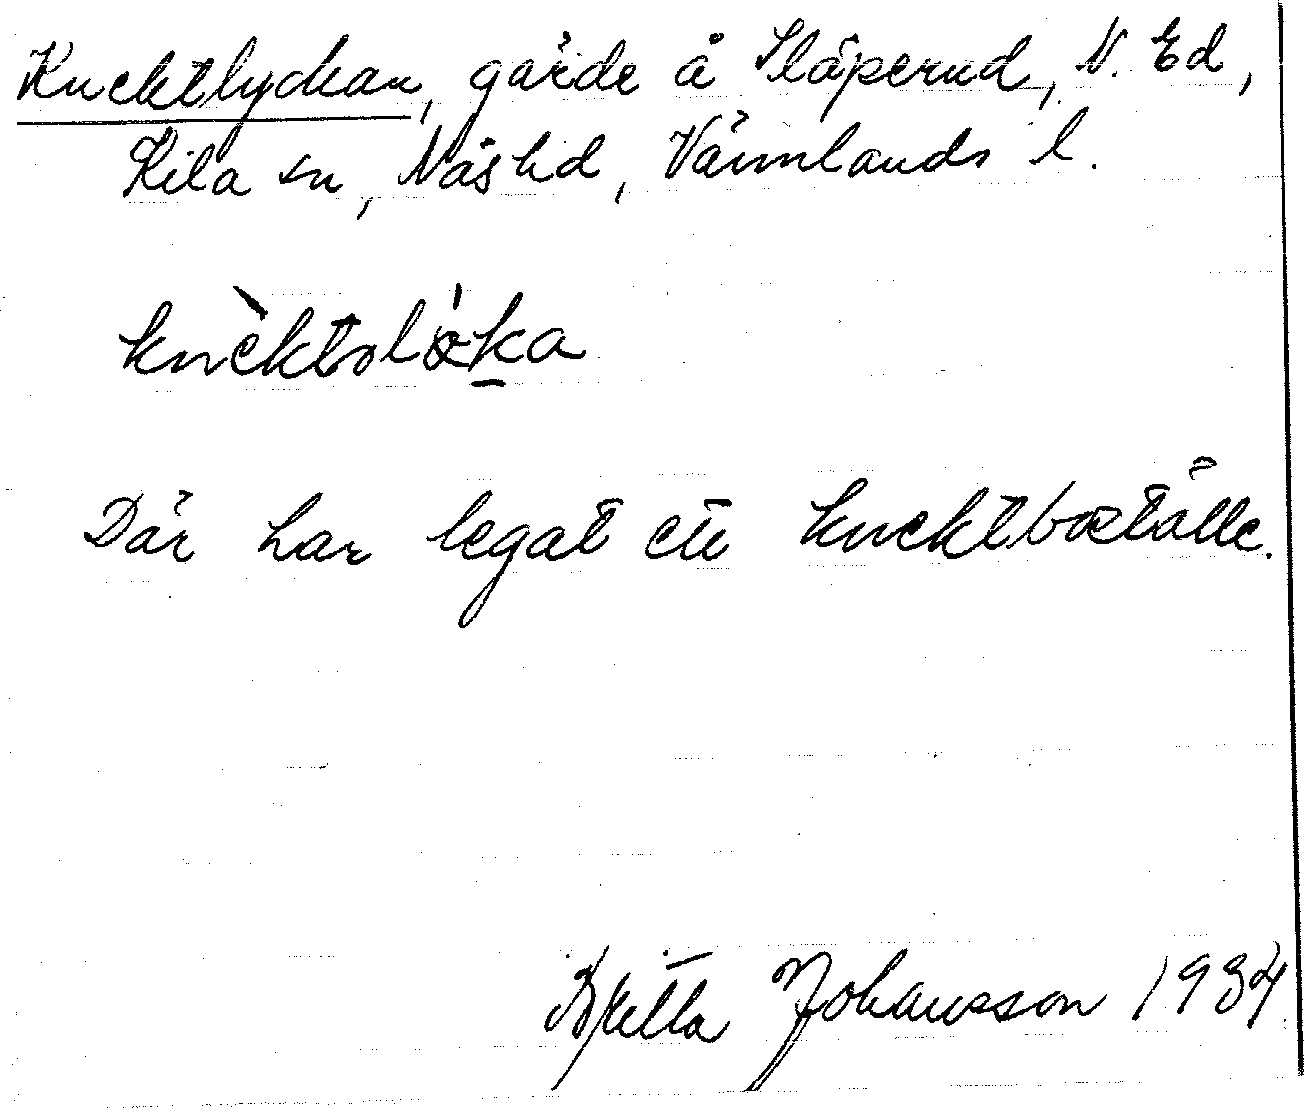 Knektlyckan, gärde å Släperud, N. Ed,
Kila sn, Näs hd, Värmlands l.
Där har legat ett knektboställe.
Britta Johansson 1934